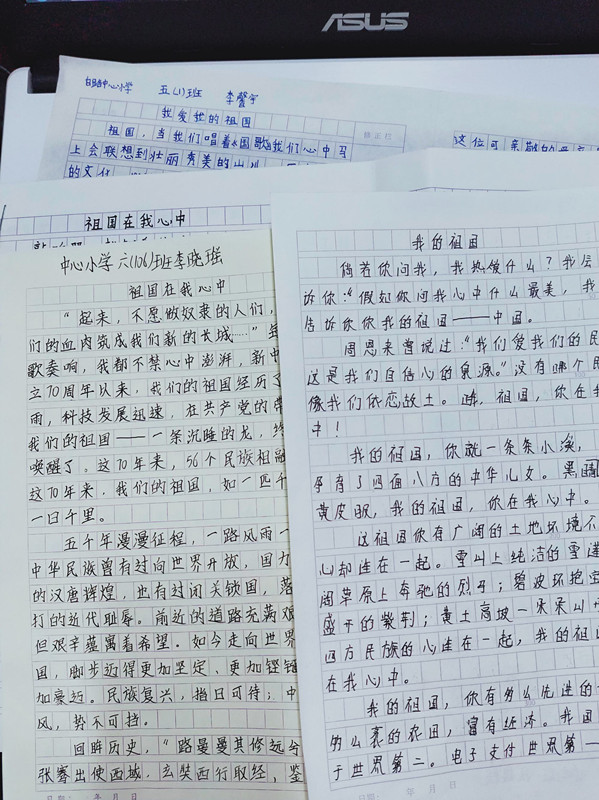 ASUS
中心小学 五(1)班 李馨宇
我爱她的祖国
祖国,当我们唱着国歌我们心中马
上会联想到壮丽秀美的山川
的文化
这位可亲敬的
祖国在我心中
中心小学六(106)班李晓瑶
祖国在我心中
“起来,不愿做奴隶的人们,
们的血肉筑成我们新的长城……”
歌奏响,我都不禁心中澎湃,新中
立70周年以来,我们的祖国经历了
雨,科技发展迅速,在共产党的带
我们的祖国——一条沉睡的龙,终
唤醒了。这70年来,56个民族相融
这70年来,我们的祖国,如一匹千
一日千里。
五千年漫漫征程,一路风雨一
中华民族曾有过向世界开放,国力
的汉唐辉煌,也有过闭关锁国,落
打的近代耻辱。前近的道路充满艰
但艰辛蕴寓着希望。如今走向世界
国,脚步迈得更加坚定、更加铿锵
加豪迈。民族复兴,指日可待;中
风,势不可挡。
回眸历史,“路曼曼其修远兮
张骞出使西域,玄奘西行取经,鉴
日期: 年 月 日
我的祖国
倘若你问我,我热爱什么?我会
诉你:“假如你问我心中什么最美,我
告诉你你我的祖国——中国。
周恩来曾说过:“我们爱我们的民
这是我们自信心的泉源。”没有哪个民
像我们依恋故土。 祖国,你在我
中!
我的祖国,你就一条条小溪,
孕育了四面八方的中华儿女。黑眼
黄皮肤,我的祖国,你在我心中。
这祖国你有广阔的土地环境不
心却连在一起。雪山上纯洁的雪莲
阔草原上奔驰的烈子;碧波环抱宝
盛开的紫荆;黄土高坡一朵朵山
四方民族的心连在一起,我的祖国
在我心中。
我的祖国,你有多么先进的
多么襄的农田,富有经济。我国
于世界第二。电子支付世界第一
日期: 年 月 日